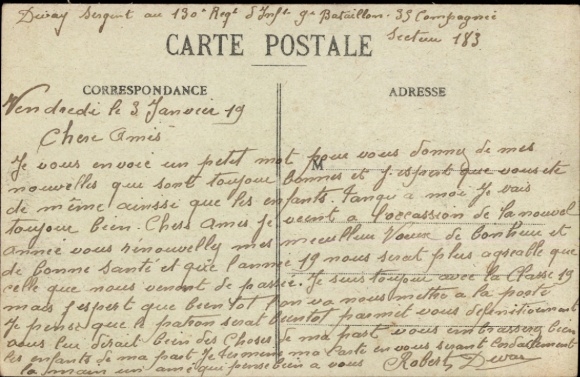 Duvay Sergent au 130e Regt d'Inft 9e Bataillon 35 Compagnie
Secteur 183
CARTE POSTALE
CORRESPONDANCE
ADRESSE
M
Vendredi le 3 Janvier 19
Chers Amis
Je vous envoie un petit mot pour vous donner de mes
nouvelles que sont toujour bonnes et j'espert que vous ete
de même ainssie que les enfants. Tanqu a moi Je vais
toujour bien. Chers Amis je vient a l'occassion de la nouvel
année vous rinouvelly mes meuilleur Vœux de bonheur et
de bonne santé et que l'année 19 nous serat plus agreable que
celle que nous venont de passée. Je suis toujour avec la Classe 19
mais j'espert que bientot l'on va nous mettre a la porte
Je pense que le patron serat bientot parmet vous definitionment
vous lui dirait bien des Choses de ma part vous imbrasserez bien
les enfants de ma part Je termine ma Carte en vous serant Cordialement
la main un ami qui pense bien a vous Robert Duvay